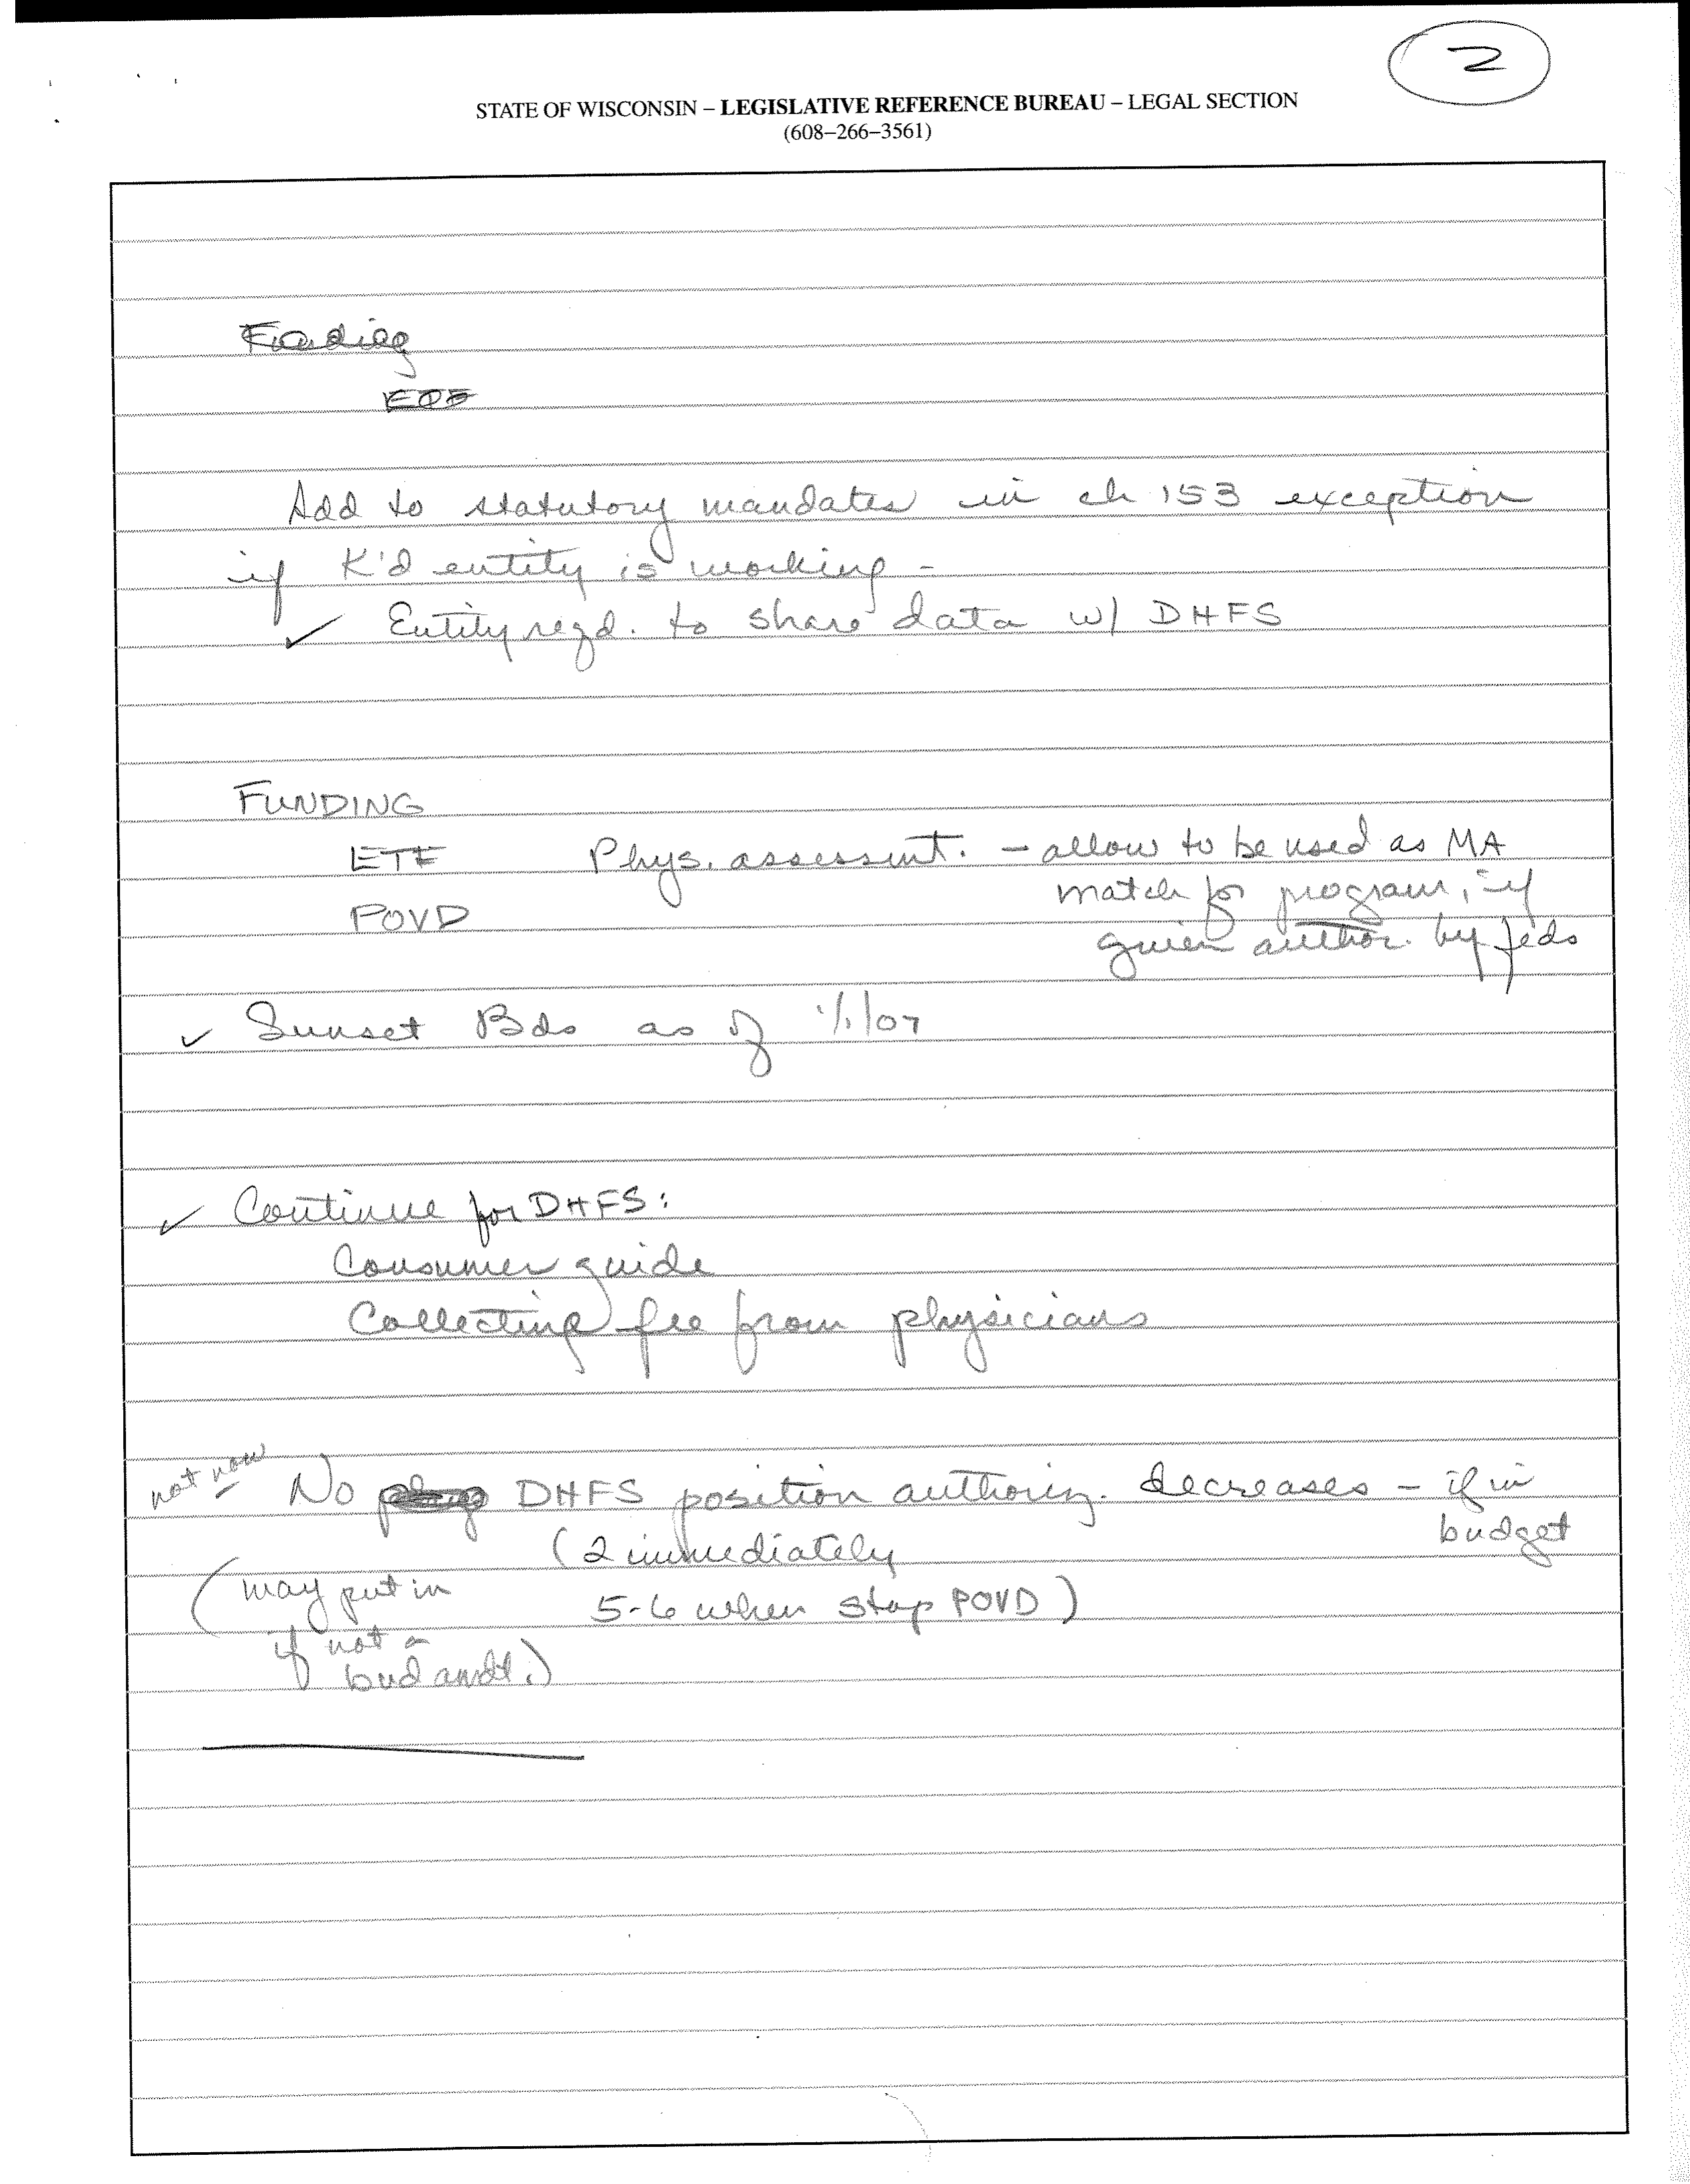 2
STATE OF WISCONSIN – LEGISLATIVE REFERENCE BUREAU – LEGAL SECTION
(608–266–3561)
Funding
Add to statutory mandates in ch 153 exception
if K'd entity is working –
✓ Entity reqd. to share data w/ DHFS
FUNDING
ETF Phys. assessmt. – allow to be used as MA
match for program, if
POVD
given author. by feds
✓ Sunset Bds as of 1/1/07
✓ Continue for DHFS:
Consumer guide
Collecting fee from physicians
not now No DHFS position authoriz. decreases – if in
budget
(2 immediately
(may put in
5-6 when stop POVD)
if not a
bud amdt.)